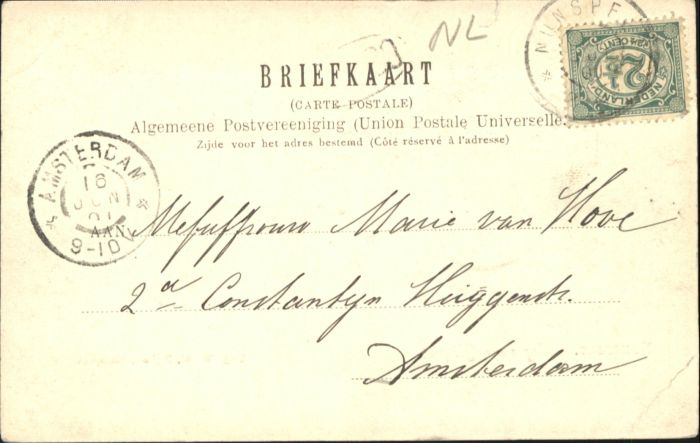 NL
NUNSPE
2½
CENT
NEDERLAND
BRIEFKAART
(CARTE-POSTALE)
Algemeene Postvereeniging (Union Postale Universelle.
Zijde voor het adres bestemd (Côté réservé à l'adresse)
AMSTERDAM
16
JUN
01
AAN
9-10V
Mejuffrouw Marie van Hove
2d Constantyn Huijgenstr.
Amsterdam